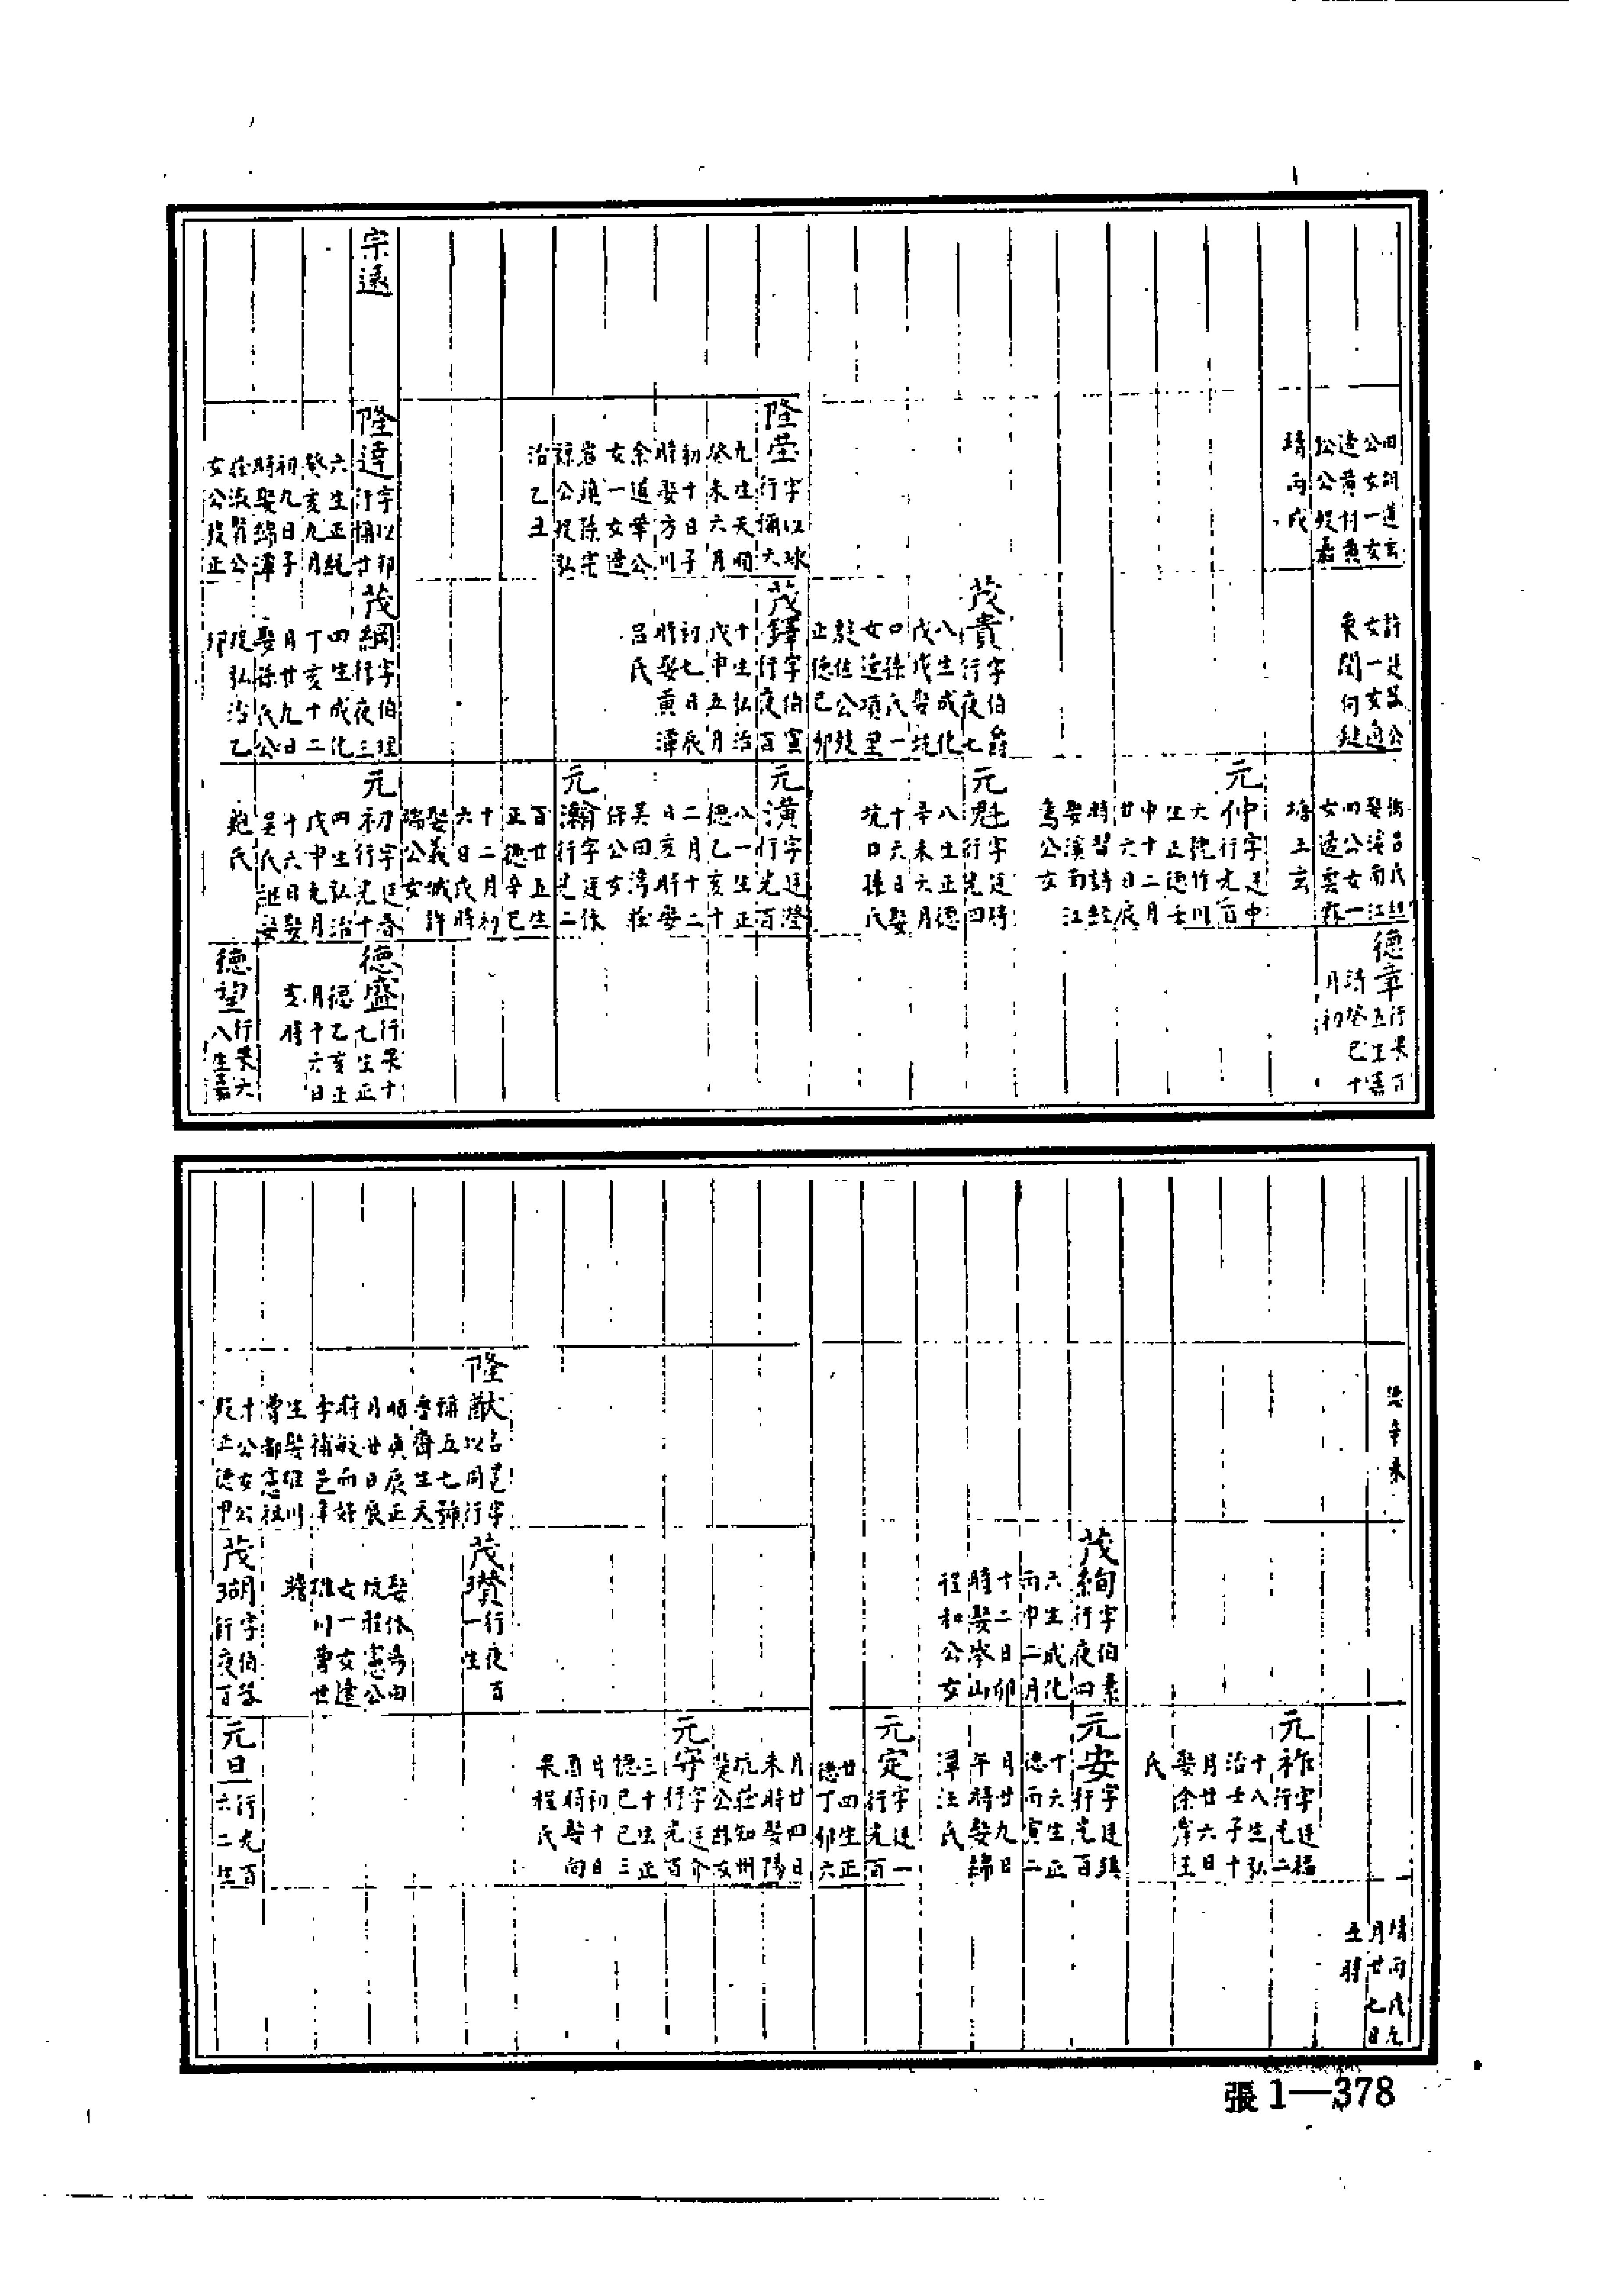 宗遠
公女一適
松公歿嘉
靖丙戌
隆瑩
字以球
行稱大
九生天順
癸未六月
初十日子
時娶方川
余道華公
女一女適
孫宗
諒公歿弘
治乙丑
隆達
字以邦
行稱廿
六生正統
癸亥九月
初九日子
時娶綿潭
汪淑賢公
女公歿正
女一女適
東關何鋕
茂貴
字伯爵
行夜七
八生成化
戊戌娶坑
口孫氏一
女適項里
殷佐公歿
正德己卯
茂鐸
字伯宣
行夜百
十生弘治
戊申五月
初七日辰
時娶黃潭
呂氏
茂綱
字伯理
行夜三
四生成化
丁亥十二
月廿九日
娶孫氏公
歿弘治乙
卯
娶溪南江
四公女一
女適雲霧
塘王玄
元仲
字廷中
行光百
六院竹川
生正德壬
申十二月
廿六日辰
時習詩經
娶溪南江
公女
元魁
字廷時
行光四
八生正德
辛未六月
十六日娶
坑口孫氏
元潢
字廷澄
行光百
八一生正
德乙亥十
二月十二
日亥時娶
吳田灣莊
保公女
元瀚
字廷休
行光二
百廿五生
正德辛巳
十二月初
六日戌時
娶義城許
瑞公女
元初
字廷春
行光十
四生弘治
戊申九月
十六日娶
吳氏繼娶
鮑氏
德章
行果百
五生嘉
靖癸巳十
月初
德盛
行果十
七生正
德乙亥正
月十六日
亥時
德望
行果六
八生嘉
德辛未
隆猷
占邑字
以同行
稱五七號
魯齋生天
順庚辰正
月廿日辰
時敏而好
李補邑庠
生娶雄川
曹都憲祖
十公女公
歿正德甲
茂絢
字伯素
行夜四
六生成化
丙申二月
十二日卯
時娶岑山
程和公女
茂瓚
行夜百
一生
娶休寧田
坑程憲公
女一女適
雄川曹世
瞻
茂瑚
字伯器
行夜百
元祚
字廷福
行光二
十八生弘
治壬子十
月廿六日
娶余岸王
氏
元安
字廷鎮
行光百
十六生正
德丙寅二
月廿九日
午時娶綿
潭汪氏
元定
字廷一
行光百
廿四生正
德丁卯六
月廿四日
未時娶陽
坑莊知州
獎公妹女
元守
字廷介
行光百
三十生正
德己巳三
月初十日
酉時娶向
杲程氏
元旦
行光百
六二生
靖丙戌九
月廿七日
丑時
張1—378